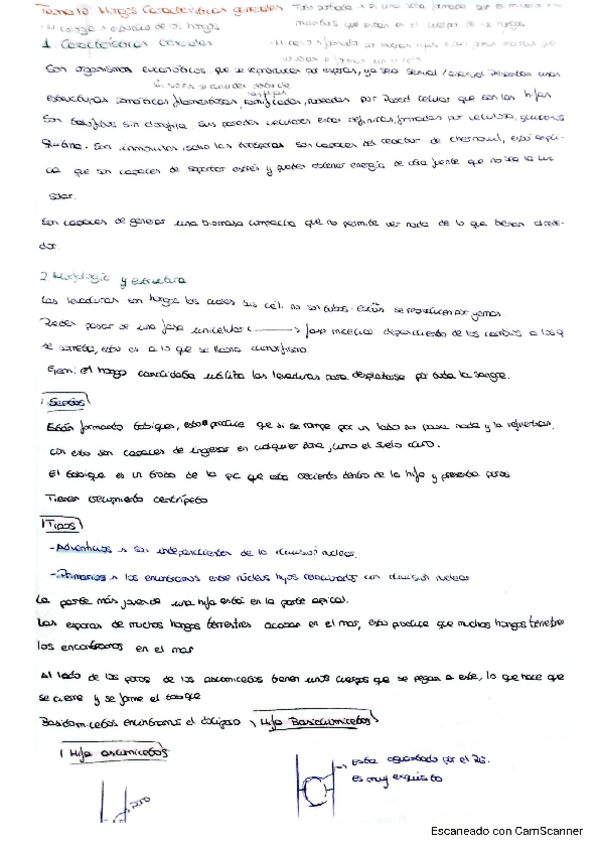 Tema 10: Hongos Características generales
1. Características Generales
Son organismos eucarióticos que se reproducen por esporas, ya sea sexual / asexual Presentan unas
estructuras somáticas filamentosas, ramificadas, rodeadas por Pared celular que son las hifas
Son sin clorofila. Sus paredes celulares están definidas, formadas por celulosa, glucanos
Quitina. Son inmoviles solo las son capaces del reactor de chernovil, esto expli-
ca que son capaces de soportar estrés y pueden obtener energía de otra fuente que no sea la luz
solar.
Son capaces de generar una biomasa compacta que no permite ver nada de lo que tienen alrede-
dor.
2. Morfología y estructura
Las levaduras son hongos los cuales sus cél. no son tubos. Estas se reproducen por yemas.
Pueden pasar de una fase unicelular ↔ fase micelial dependiendo de los cambios a los q
se someta, esto es a lo que se llama dimorfismo.
Ejem: el hongo candidata utiliza las levaduras para desplazarse por toda la sangre.
Septos
Están formando tabiques, esto produce que si se rompe por un lado no pasa nada y la refuerzan,
con esto son capaces de ingresar en cualquier zona, como el suelo duro.
El tabique es un trozo de la pc que esta creciendo dentro de la hifa y presenta poros
Tienen crecimiento centrípeto
Tipos
- Adventicios → son independientes de la división nuclear.
- Primarios → los encontramos entre núcleos hijos relacionados con división nuclear
La parte más joven de una hifa está en la parte apical.
Las esporas de muchos hongos terrestres acaban en el mar, esto produce que muchos hongos terrestres
los encontramos en el mar
Al lado de los poros de los ascomicetos tienen unos cuerpos que se pegan a este, lo que hace que
se cierre y se forme el tabique
Basidiomicetos encontramos el doliporo, Hifa Basidiomicetos
Hifa ascomicetos
esta aguantado por el RE.
es muy exquisito
poro
Escaneado con CamScanner